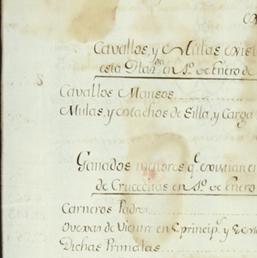 Cavallos, y Mulas exist
esta Htaz.da en 1.o de Enero de
Cavallos Mansos
Mulas, y Machos de Silla, y Carga
Ganados menores q.e existian en
de Crucecitas en 1.o de Enero
Carneros Padres
Ovexas de Vientre en Princip.s y
Dichas Primalas